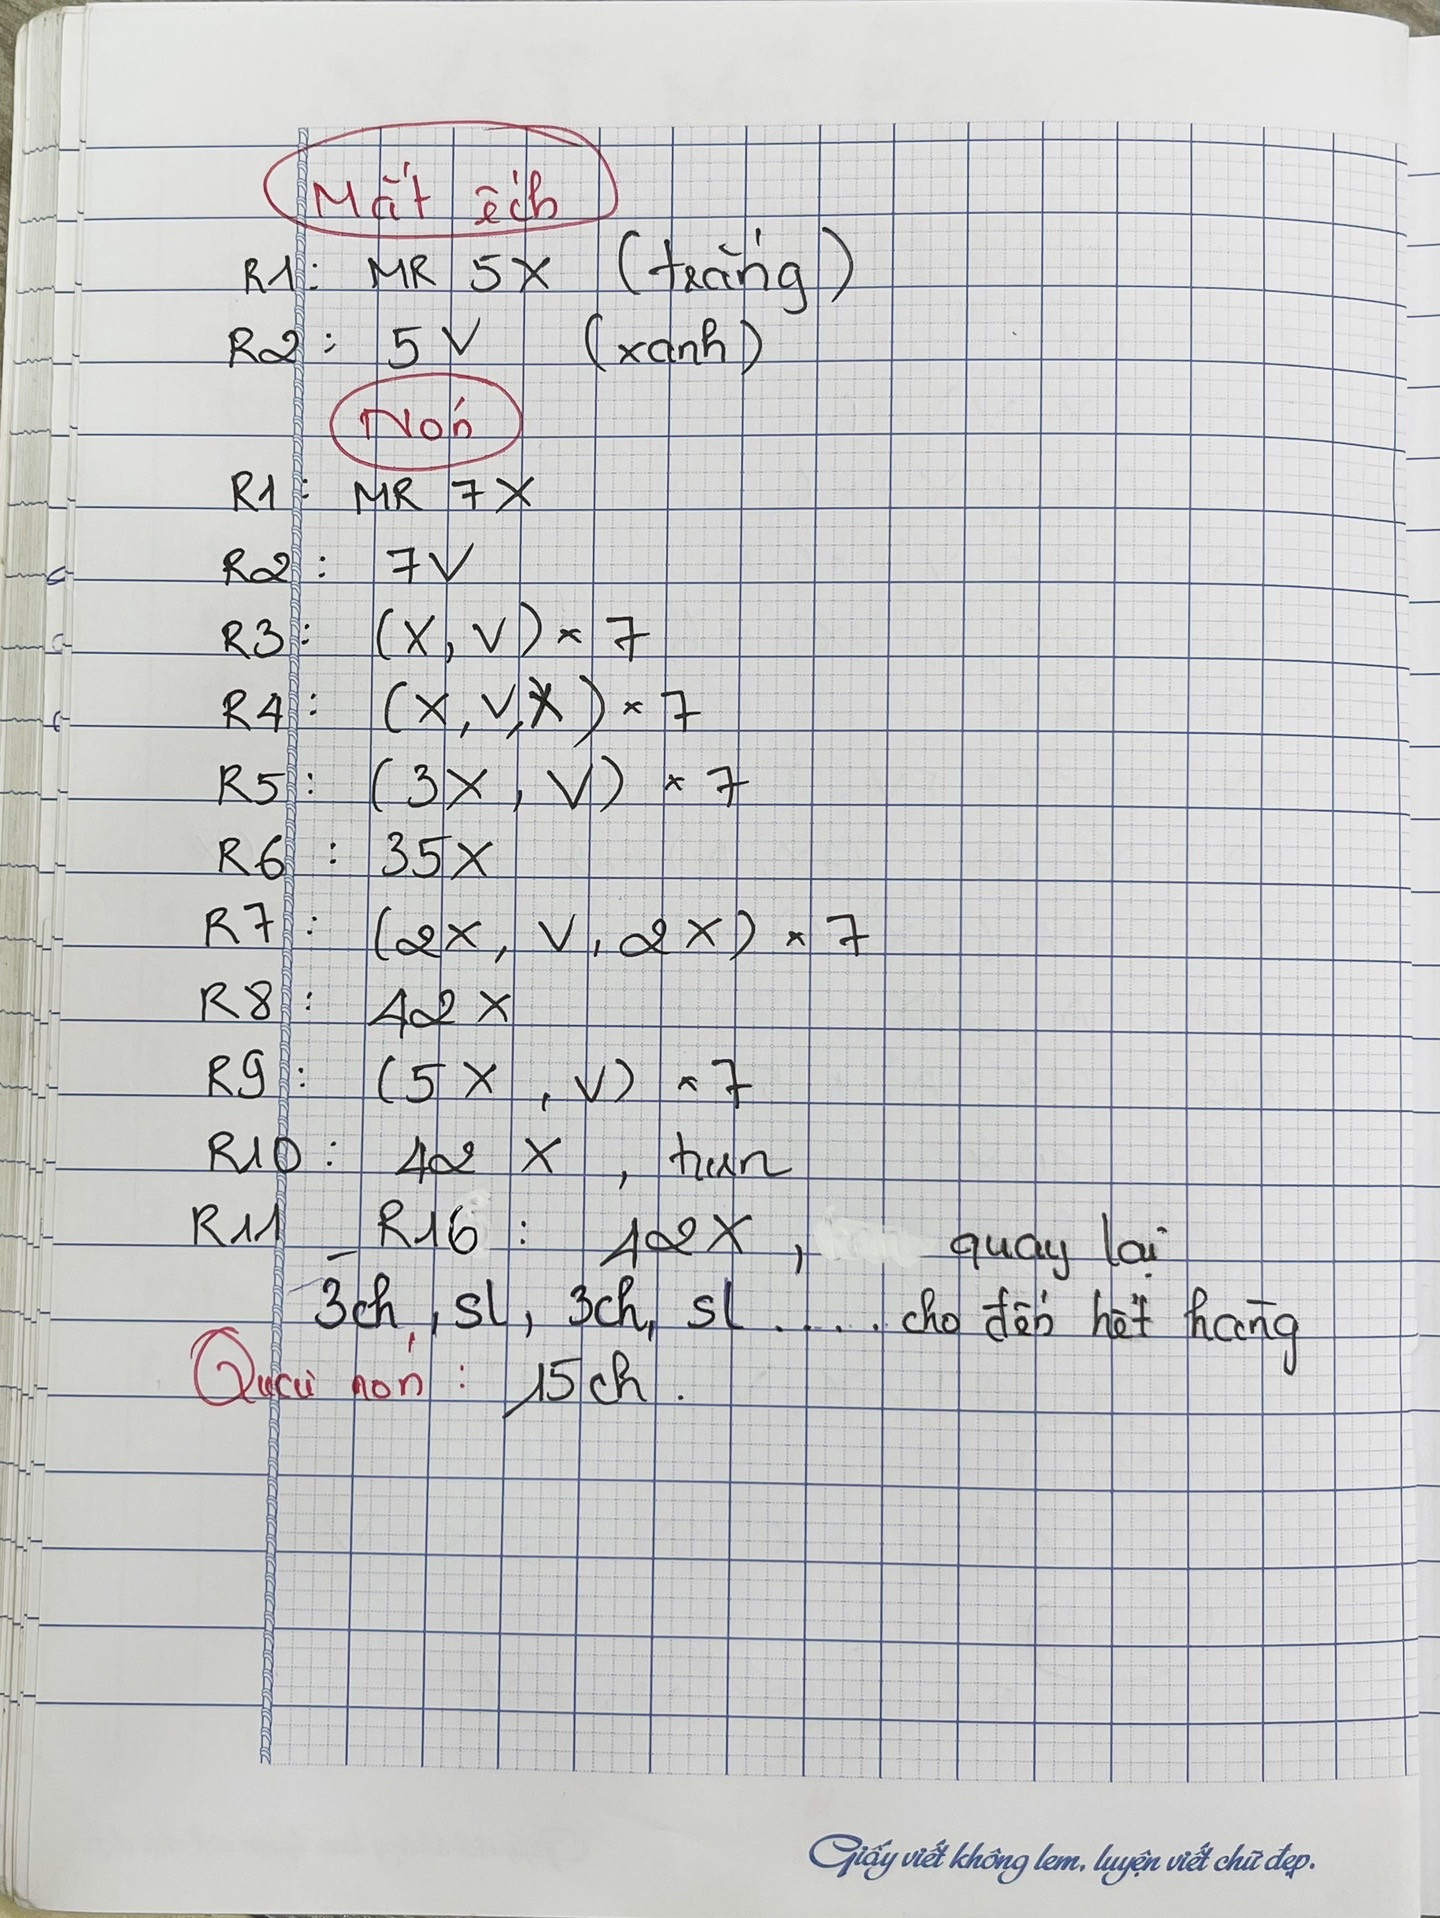 Mắt ếch
R1: MR 5X (trắng)
R2: 5V (xanh)
Nón
R1: MR 7X
R2: 7V
R3: (X, V) × 7
R4: (X, V, X) × 7
R5: (3X, V) × 7
R6: 35X
R7: (2X, V, 2X) × 7
R8: 42X
R9: (5X, V) × 7
R10: 42X, hun
R11 - R16: 42X, quay lại
3ch, sl, 3ch, sl ..... cho đến hết hàng
Quai nón: 15ch.
Giấy viết không lem, luyện viết chữ đẹp.